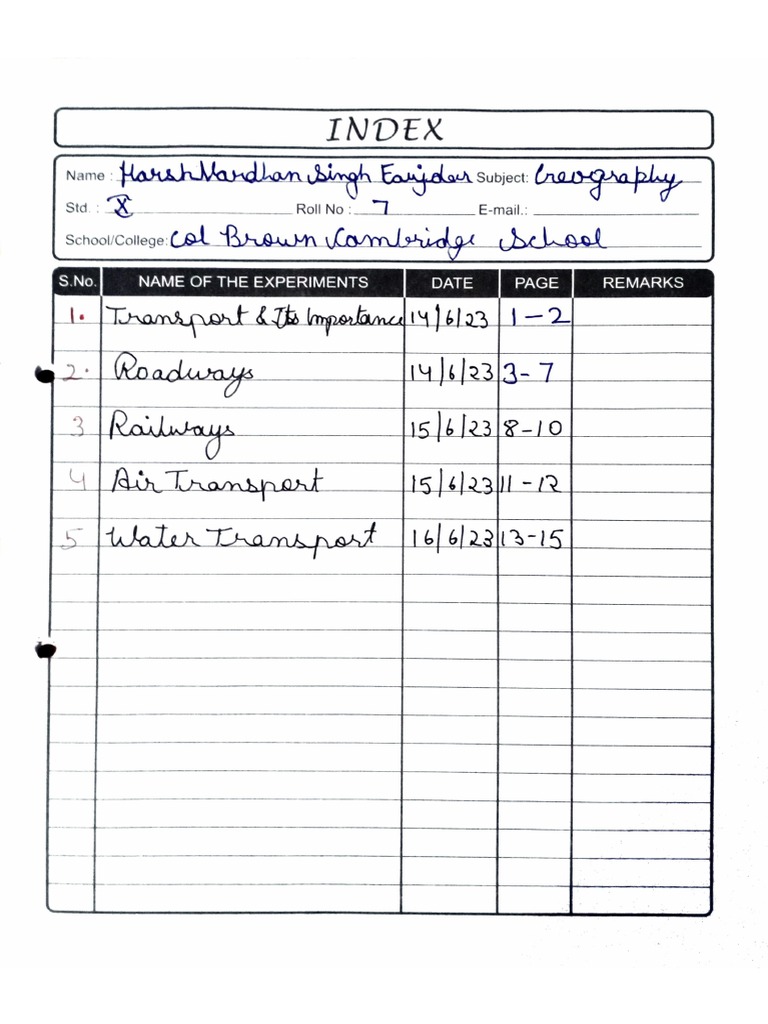 INDEX
Name : Harsh Vardhan Singh Subject: Geography
Std. : X Roll No : 7 E-mail.:
School/College: Col Brown Cambridge School
S.No. NAME OF THE EXPERIMENTS DATE PAGE REMARKS
1. Transport & Its Importance 14/6/23 1-2
2. Roadways 14/6/23 3-7
3 Railways 15/6/23 8-10
4 Air Transport 15/6/23 11-12
5 Water Transport 16/6/23 13-15